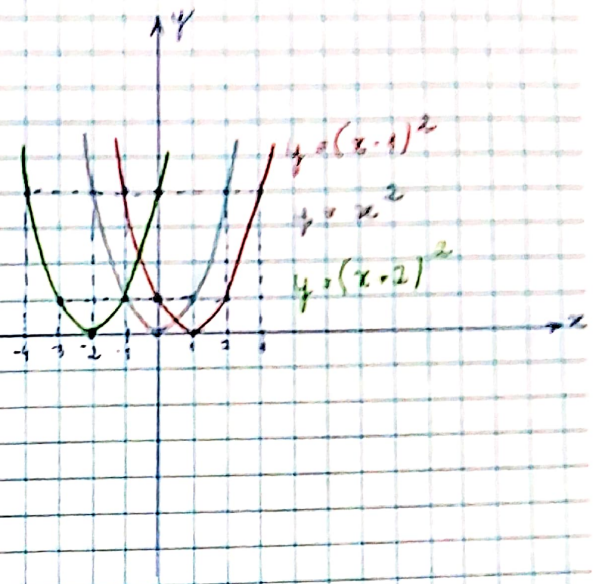 y
y = (x - 1)²
y = x²
y = (x + 2)²
x
-4 -3 -2 -1 1 2 3